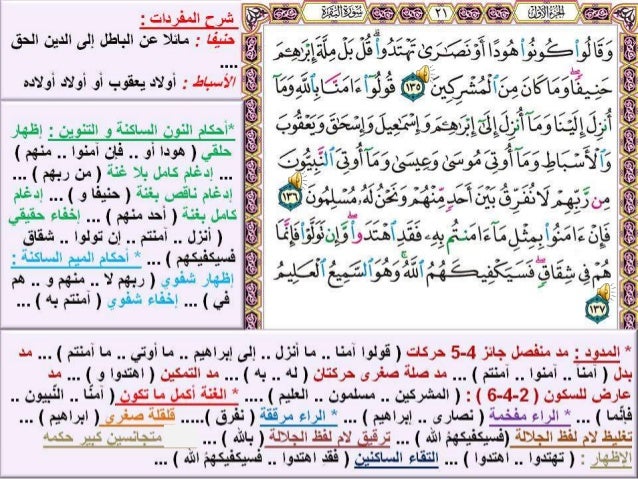 الجزء الأول
٢١
سورة البقرة
وَقَالُوا۟ كُونُوا۟ هُودًا أَوْ نَصَـٰرَىٰ تَهْتَدُوا۟ ۗ قُلْ بَلْ مِلَّةَ إِبْرَٰهِـۧمَ
حَنِيفًا ۖ وَمَا كَانَ مِنَ ٱلْمُشْرِكِينَ ١٣٥ قُولُوٓا۟ ءَامَنَّا بِٱللَّهِ وَمَآ
أُنزِلَ إِلَيْنَا وَمَآ أُنزِلَ إِلَىٰٓ إِبْرَٰهِـۧمَ وَإِسْمَـٰعِيلَ وَإِسْحَـٰقَ وَيَعْقُوبَ
وَٱلْأَسْبَاطِ وَمَآ أُوتِىَ مُوسَىٰ وَعِيسَىٰ وَمَآ أُوتِىَ ٱلنَّبِيُّونَ
مِن رَّبِّهِمْ لَا نُفَرِّقُ بَيْنَ أَحَدٍ مِّنْهُمْ وَنَحْنُ لَهُۥ مُسْلِمُونَ ١٣٦
فَإِنْ ءَامَنُوا۟ بِمِثْلِ مَآ ءَامَنتُم بِهِۦ فَقَدِ ٱهْتَدَوا۟ ۖ وَّإِن تَوَلَّوْا۟ فَإِنَّمَا
هُمْ فِى شِقَاقٍ ۖ فَسَيَكْفِيكَهُمُ ٱللَّهُ ۚ وَهُوَ ٱلسَّمِيعُ ٱلْعَلِيمُ
١٣٧
شرح المفردات :
حنيفا : مائلا عن الباطل إلى الدين الحق
....
الأسباط : أولاد يعقوب أو أولاد أولاده
*أحكام النون الساكنة و التنوين : إظهار
حلقي ( هودا أو .. فإن آمنوا .. منهم )
... إدغام كامل بلا غنة ( من ربهم ) ...
إدغام ناقص بغنة ( حنيفا و ) ... إدغام
كامل بغنة ( أحد منهم ) ... إخفاء حقيقي
( أنزل .. آمنتم .. إن تولوا .. شقاق
فسيكفيكهم ) ... * أحكام الميم الساكنة :
إظهار شفوي ( ربهم لا .. منهم و .. هم
في ) ... إخفاء شفوي ( آمنتم به ) ...
* المدود : مد منفصل جائز 4-5 حركات ( قولوا آمنا .. ما أنزل .. إلى إبراهيم .. ما أوتي .. ما آمنتم ) ... مد
بدل ( آمنا .. آمنوا .. آمنتم ) ... مد صلة صغرى حركتان ( له .. به ) ... مد التمكين ( اهتدوا و ) ... مد
عارض للسكون ( 2-4-6 ) : ( المشركين .. مسلمون .. العليم ) .... * الغنة أكمل ما تكون ( آمنّا .. النّبيون ..
فإنّما ) ... * الراء مفخمة ( نصارى .. إبراهيم ) ... * الراء مرققة ( نفرق ) ..... قلقلة صغرى ( ابراهيم ) ...
تغليظ لام لفظ الجلالة (فسيكفيكهمُ الله ) ... ترقيق لام لفظ الجلالة ( بالله ) ... متجانسين كبير حكمه
الإظهار : ( تهتدوا .. اهتدوا ) ... التقاء الساكنين ( فقدِ اهتدوا .. فسيكفيكهمُ الله ) ...